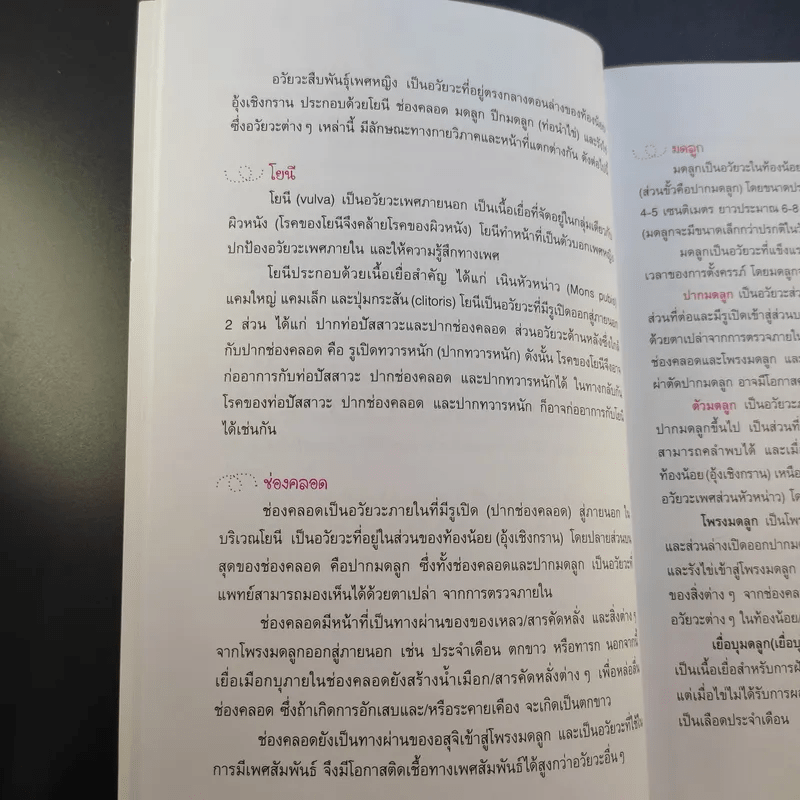 อวัยวะสืบพันธุ์เพศหญิง เป็นอวัยวะที่อยู่ตรงกลางตอนล่างของท้องน้อย/
อุ้งเชิงกราน ประกอบด้วยโยนี ช่องคลอด มดลูก ปีกมดลูก (ท่อนำไข่) และรังไข่
ซึ่งอวัยวะต่าง ๆ เหล่านี้ มีลักษณะทางกายวิภาคและหน้าที่แตกต่างกัน ดังต่อไปนี้
โยนี
โยนี (vulva) เป็นอวัยวะเพศภายนอก เป็นเนื้อเยื่อที่จัดอยู่ในกลุ่มเดียวกับ
ผิวหนัง (โรคของโยนีจึงคล้ายโรคของผิวหนัง) โยนีทำหน้าที่เป็นตัวบอกเพศหญิง
ปกป้องอวัยวะเพศภายใน และให้ความรู้สึกทางเพศ
โยนีประกอบด้วยเนื้อเยื่อสำคัญ ได้แก่ เนินหัวหน่าว (Mons pubis)
แคมใหญ่ แคมเล็ก และปุ่มกระสัน (clitoris) โยนีเป็นอวัยวะที่มีรูเปิดออกสู่ภายนอก
2 ส่วน ได้แก่ ปากท่อปัสสาวะและปากช่องคลอด ส่วนอวัยวะด้านหลังซึ่งใกล้
กับปากช่องคลอด คือ รูเปิดทวารหนัก (ปากทวารหนัก) ดังนั้น โรคของโยนีจึงอาจ
ก่ออาการกับท่อปัสสาวะ ปากช่องคลอด และปากทวารหนักได้ ในทางกลับกัน
โรคของท่อปัสสาวะ ปากช่องคลอด และปากทวารหนัก ก็อาจก่ออาการกับโยนี
ได้เช่นกัน
ช่องคลอด
ช่องคลอดเป็นอวัยวะภายในที่มีรูเปิด (ปากช่องคลอด) สู่ภายนอก ใน
บริเวณโยนี เป็นอวัยวะที่อยู่ในส่วนของท้องน้อย (อุ้งเชิงกราน) โดยปลายส่วนบน
สุดของช่องคลอด คือปากมดลูก ซึ่งทั้งช่องคลอดและปากมดลูก เป็นอวัยวะที่
แพทย์สามารถมองเห็นได้ด้วยตาเปล่า จากการตรวจภายใน
ช่องคลอดมีหน้าที่เป็นทางผ่านของของเหลว/สารคัดหลั่ง และสิ่งต่าง ๆ
จากโพรงมดลูกออกสู่ภายนอก เช่น ประจำเดือน ตกขาว หรือทารก นอกจากนี้
เยื่อเมือกบุภายในช่องคลอดยังสร้างน้ำเมือก/สารคัดหลั่งต่าง ๆ เพื่อหล่อลื่น
ช่องคลอด ซึ่งถ้าเกิดการอักเสบและ/หรือระคายเคือง จะเกิดเป็นตกขาว
ช่องคลอดยังเป็นทางผ่านของอสุจิเข้าสู่โพรงมดลูก และเป็นอวัยวะที่ใช้ใน
การมีเพศสัมพันธ์ จึงมีโอกาสติดเชื้อทางเพศสัมพันธ์ได้สูงกว่าอวัยวะอื่น ๆ
มดลูก
มดลูกเป็นอวัยวะในท้องน้อย
(ส่วนขั้วคือปากมดลูก) โดยขนาดปร
4-5 เซนติเมตร ยาวประมาณ 6-8
(มดลูกจะมีขนาดเล็กกว่าปรกติในวั
มดลูกเป็นอวัยวะที่แข็งแร
เวลาของการตั้งครรภ์ โดยมดลูก
ปากมดลูก เป็นอวัยวะส่ว
ส่วนที่ต่อและมีรูเปิดเข้าสู่ส่วนบ
ด้วยตาเปล่าจากการตรวจภายใน
ช่องคลอดและโพรงมดลูก แล
ผ่าตัดปากมดลูก อาจมีโอกาส
ตัวมดลูก เป็นอวัยวะภ
ปากมดลูกขึ้นไป เป็นส่วนที่
สามารถคลำพบได้ และเมื่
ท้องน้อย (อุ้งเชิงกราน) เหนือ
อวัยวะเพศส่วนหัวหน่าว) โด
โพรงมดลูก เป็นโพ
และส่วนล่างเปิดออกปากมด
และรังไข่เข้าสู่โพรงมดลูก
ของสิ่งต่าง ๆ จากช่องคล
อวัยวะต่าง ๆ ในท้องน้อย/
เยื่อบุมดลูก(เยื่อบุ
เป็นเนื้อเยื่อสำหรับการฝั
แต่เมื่อไข่ไม่ได้รับการผส
เป็นเลือดประจำเดือน